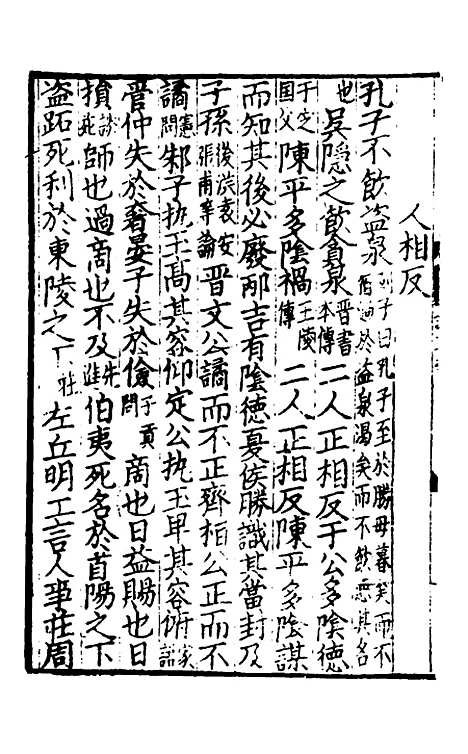 人相反
孔子不飲盜泉尸子曰孔子至於勝母暮矣而不宿過於盜泉渴矣而不飲惡其名
也吳隱之飲貪泉晉書本傳二人正相反于公多陰德
于定國父陳平多陰禍王陵傳二人正相反陳平多陰謀
而知其後必廢邴吉有陰德夏侯勝識其當封及
子孫後漢袁安張甫寧論晉文公譎而不正齊桓公正而不
譎憲問邾子執玉高其容仰定公執玉卑其容俯家語
管仲失於奢晏子失於儉子貢問商也日益賜也日
損說苑師也過商也不及先進伯夷死名於首陽之下
盜跖死利於東陵之上莊左丘明工言人事莊周